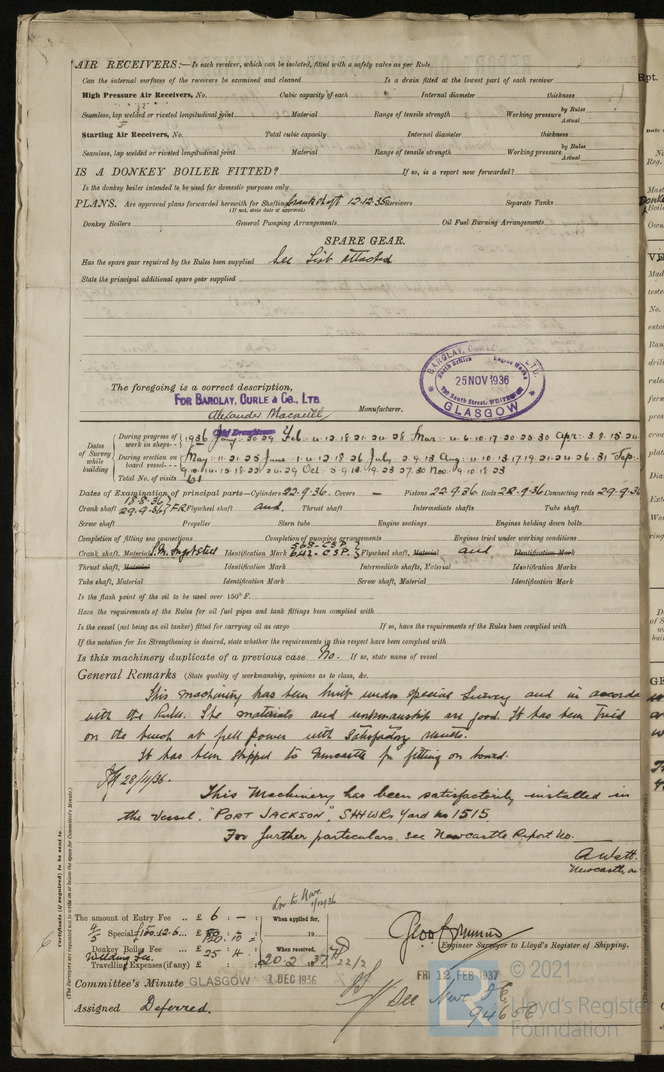 AIR RECEIVERS:—Is each receiver, which can be isolated, fitted with a safety valve as per Rule
Can the internal surfaces of the receivers be examined and cleaned Is a drain fitted at the lowest part of each receiver
High Pressure Air Receivers, No. Cubic capacity of each Internal diameter thickness
Seamless, lap welded or riveted longitudinal joint Material Range of tensile strength Working pressure by Rules Actual
Starting Air Receivers, No. Total cubic capacity Internal diameter thickness
Seamless, lap welded or riveted longitudinal joint Material Range of tensile strength Working pressure by Rules Actual
IS A DONKEY BOILER FITTED? If so, is a report now forwarded?
Is the donkey boiler intended to be used for domestic purposes only
PLANS. Are approved plans forwarded herewith for Shafting Crankshaft 12-12-35 Receivers Separate Tanks
(If not, state date of approval)
Donkey Boilers General Pumping Arrangements Oil Fuel Burning Arrangements
SPARE GEAR.
Has the spare gear required by the Rules been supplied See List attached
State the principal additional spare gear supplied
BARCLAY, CURLE & CO. LTD
North British Engine Works
25 NOV 1936
740 South Street, WHITEINCH
GLASGOW
The foregoing is a correct description,
FOR BARCLAY, CURLE & Co., LTD.
Alexander Macneill Manufacturer.
Dates of Survey while building
During progress of work in shops - - 1936 Jany: 30 29 Feb: 4. 12. 18. 21. 24. 28 Mar: 4. 6. 10. 17. 20. 25. 30 Apr: 3. 8. 15. 24
During erection on board vessel - - - May: 11. 21. 25 June: 1. 4. 12. 18. 26 July: 2. 9. 13 Aug: 4. 10. 13. 17. 19. 21. 24. 26. 31 Sep:
9. 10. 14. 15. 18. 22. 24. 29 Oct: 2. 9. 13. 19. 23. 27. 30 Nov: 9. 10. 18. 23
Total No. of visits 61
Dates of Examination of principal parts—Cylinders 22.9.36. Covers — Pistons 22.9.36. Rods 22.9.36 Connecting rods 29.9.36
18.8.36
Crank shaft 29.9.36 } F.R Flywheel shaft and. Thrust shaft Intermediate shafts Tube shaft
Screw shaft Propeller Stern tube Engine seatings Engines holding down bolts
Completion of fitting sea connections Completion of pumping arrangements Engines tried under working conditions
568-CSP.
Crank shaft, Material S.M. Ingot steel Identification Mark 642-CSP. Flywheel shaft, Material and Identification Mark
Thrust shaft, Material Identification Mark Intermediate shafts, Material Identification Marks
Tube shaft, Material Identification Mark Screw shaft, Material Identification Mark
Is the flash point of the oil to be used over 150° F.
Have the requirements of the Rules for oil fuel pipes and tank fittings been complied with
Is the vessel (not being an oil tanker) fitted for carrying oil as cargo If so, have the requirements of the Rules been complied with
If the notation for Ice Strengthening is desired, state whether the requirements in this respect have been complied with
Is this machinery duplicate of a previous case No. If so, state name of vessel
General Remarks (State quality of workmanship, opinions as to class, &c.
This machinery has been built under special survey and in accorda
with the Rules. The materials and workmanship are good. It has been tried
on the bench at full power with satisfactory results.
It has been shipped to Newcastle for fitting on board.
28/11/36.
This Machinery has been satisfactorily installed in
the vessel, "PORT JACKSON", SHWRs Yard No 1515.
For further particulars, see Newcastle Report No.
A Watt.
Newcastle on
Certificate (if required) to be sent to
(The Surveyors are requested not to write on or below the space for Committee's Minute.)
The amount of Entry Fee .. £ 6 : — : When applied for,
4/5 Special £150.12.6 ... £ 120 : 10 : 19
Donkey Boiler Fee ... £ 25 : 4 : When received,
Welding Fee.
Travelling Expenses (if any) £ 20.2.37
22/2
Engineer Surveyor to Lloyd's Register of Shipping.
Committee's Minute GLASGOW 1 DEC 1936
FRI 12 FEB 1937
Assigned Deferred.
See Nwc. J.E.
94656
© 2021
Lloyd's Register
Foundation
Rpt.